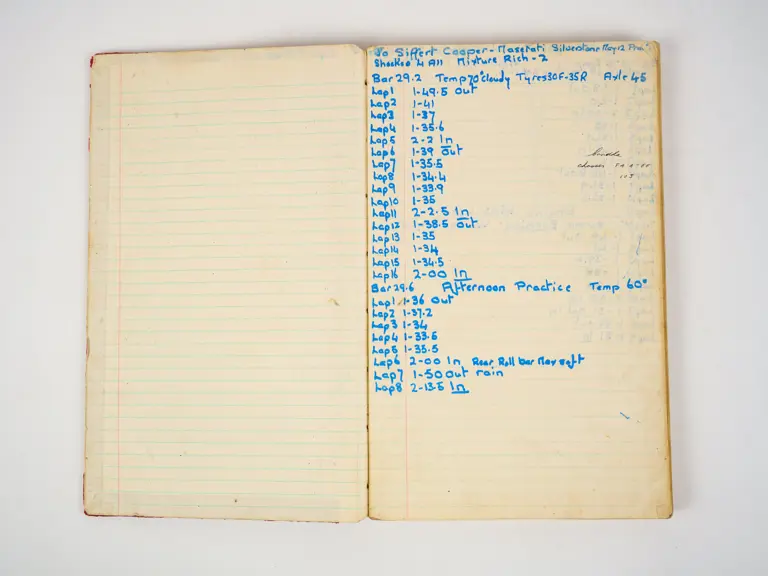 Jo Siffert Cooper-Maserati Silverstone May 12 Prac
Shocked 4 All Mixture Rich-2
Bar 29.2 Temp 70° Cloudy Tyres 30F-35R Axle 45
Lap1 1-49.5 Out
Lap2 1-41
Lap3 1-37
Lap4 1-35.6
Lap5 2-2 In
Lap6 1-39 Out
Lap7 1-35.5
Lap8 1-34.4
Lap9 1-33.9
Lap10 1-35
Lap11 2-2.5 In
Lap12 1-38.5 Out
Lap13 1-35
Lap14 1-34
Lap15 1-34.5
Lap16 2-00 In
Bar 29.6 Afternoon Practice Temp 60°
Lap1 1-36 Out
Lap2 1-37.2
Lap3 1-34
Lap4 1-33.6
Lap5 1-35.5
Lap6 2-00 In Rear Roll bar Max soft
Lap7 1-50 Out rain
Lap8 2-13.5 In